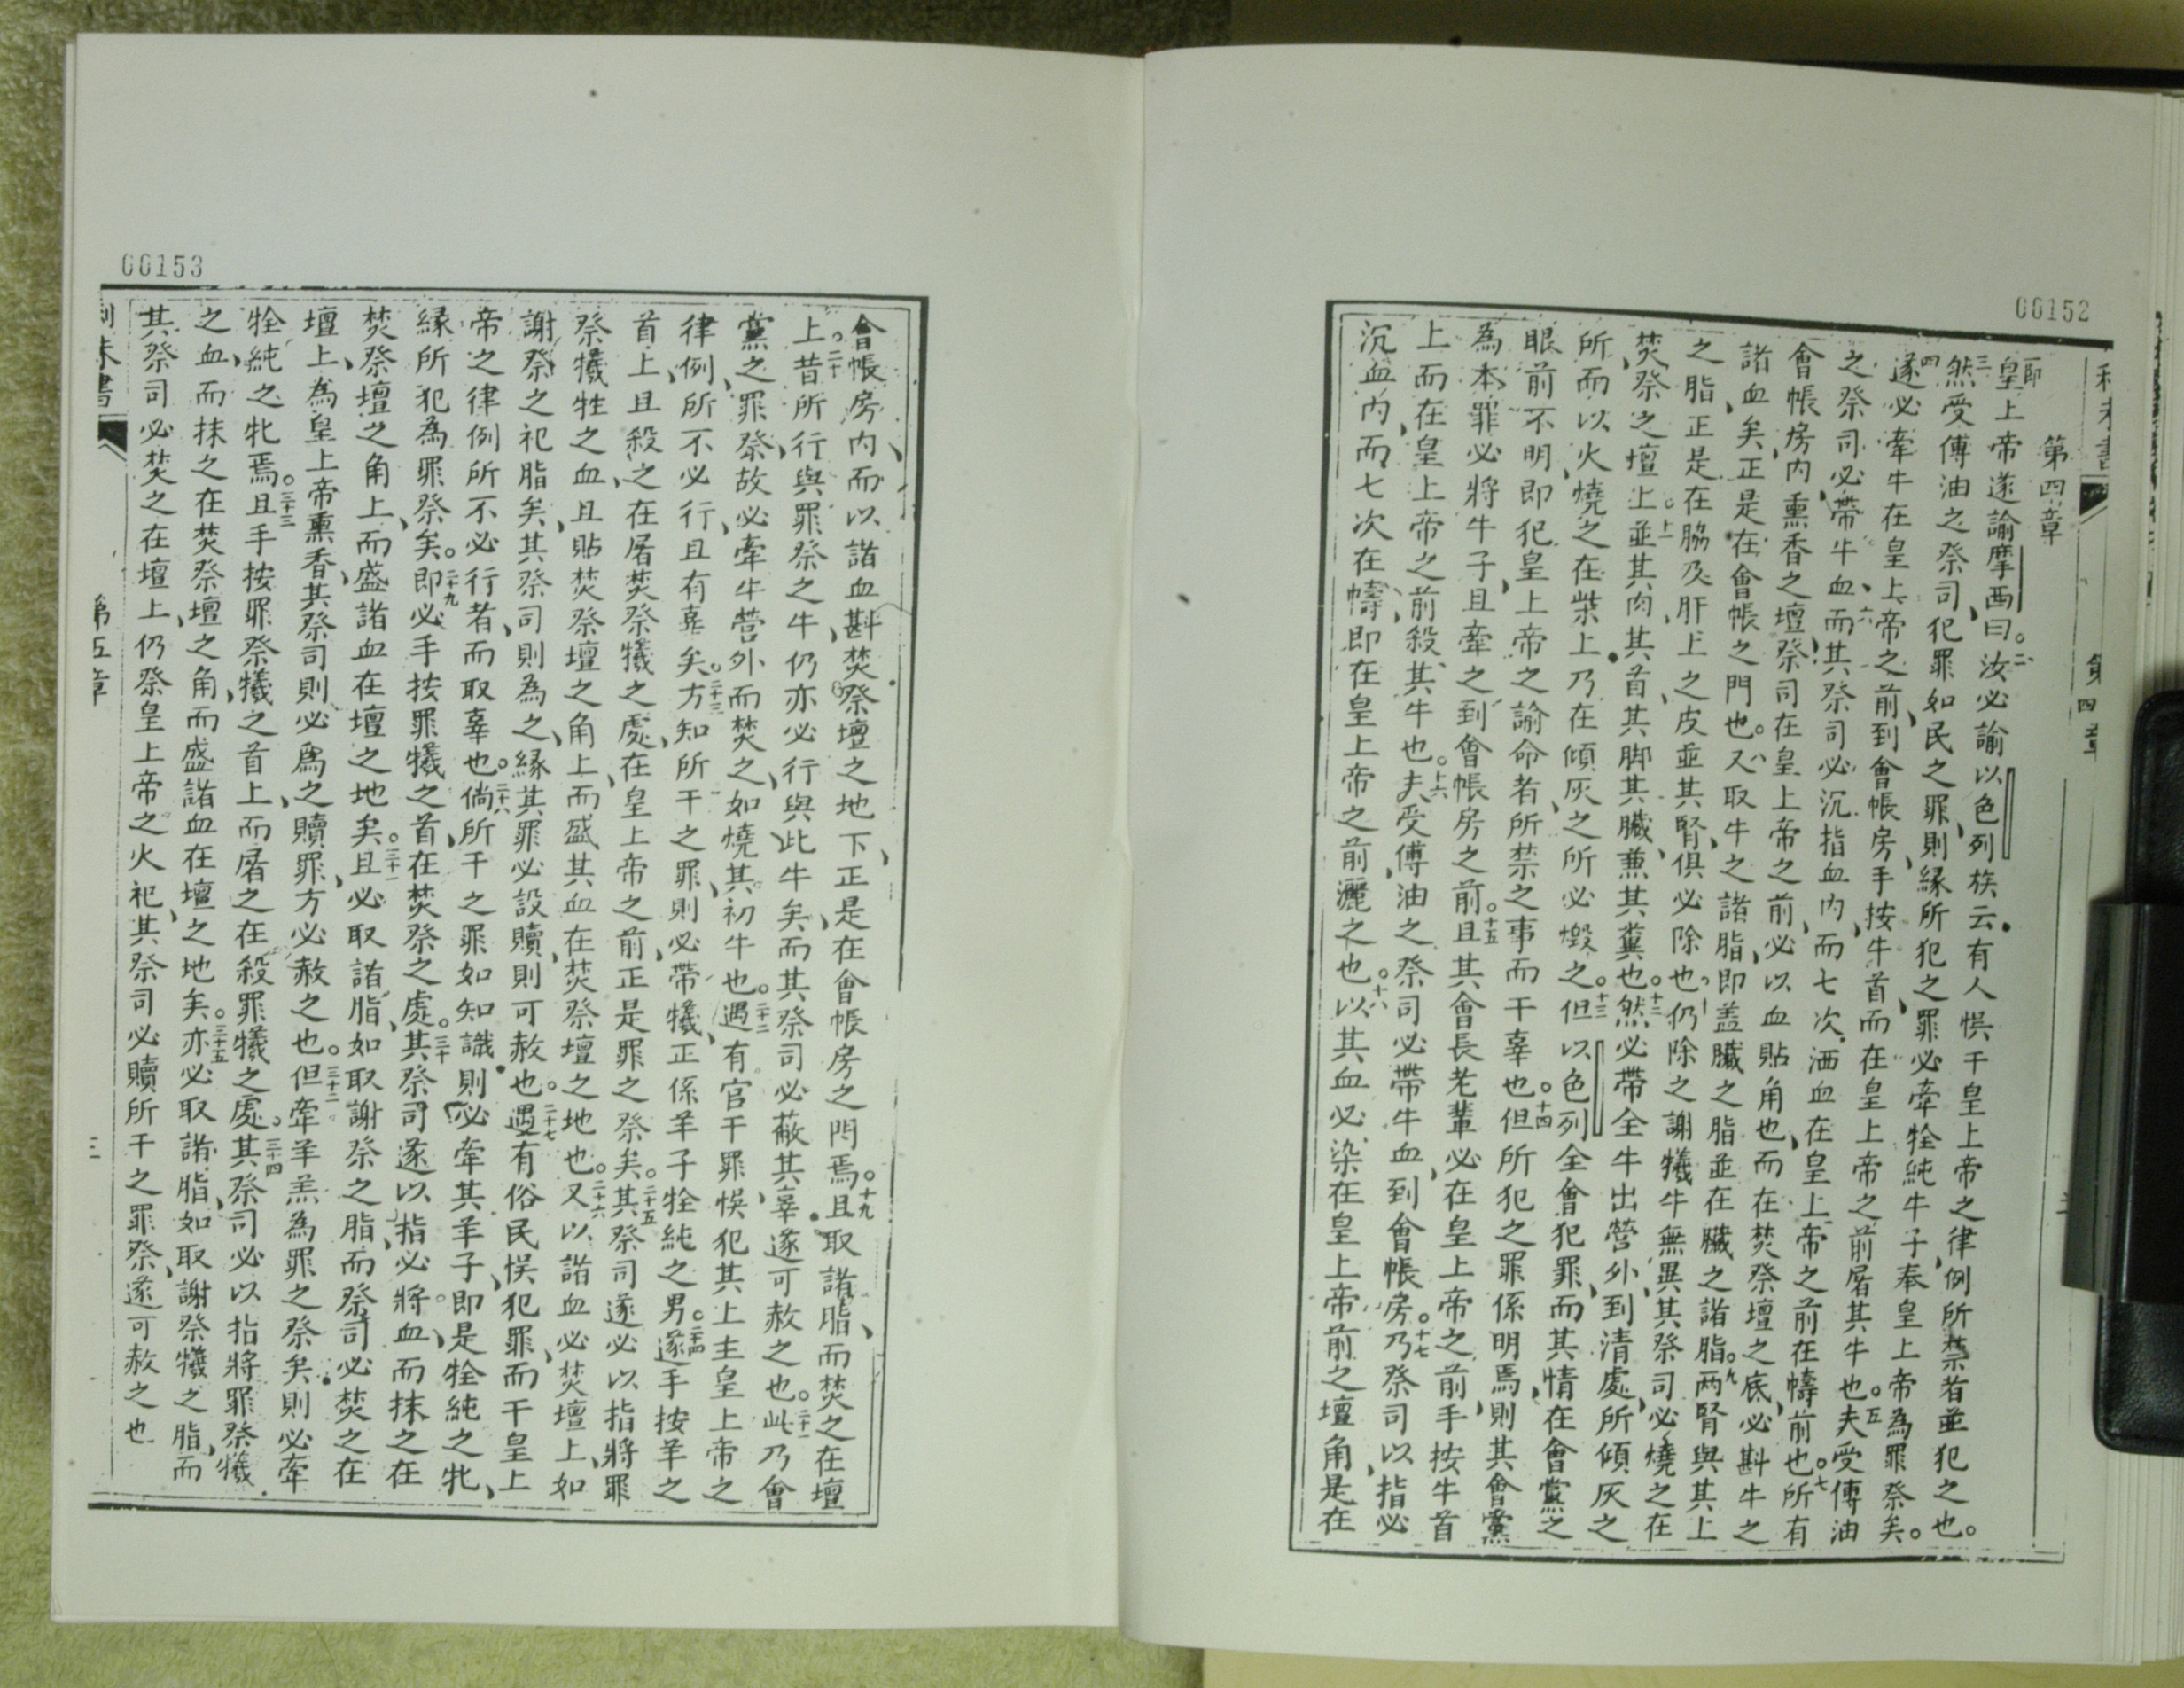 00152
第四章
皇上帝遂諭摩西曰。二汝必諭以色列族云有人悞干皇上帝之律例所禁者並犯之也。
三然受傅油之祭司犯罪如民之罪則緣所犯之罪必牽牷純牛子奉皇上帝為罪祭矣。
四遂必牽牛在皇上帝之前到會帳房手按牛首而在皇上帝之前屠其牛也。五夫受傅油
之祭司必帶牛血六而其祭司必沉指血內而七次洒血在皇上帝之前在幬前也。七所有
會帳房內熏香之壇祭司在皇上帝之前必以血貼角也而在焚祭壇之底必斟牛之
諸血矣正是在會帳之門也。八又取牛之諸脂即盖臟之脂並在臟之諸脂。九两腎與其上
之脂正是在脇及肝上之皮並其腎俱必除也仍除之謝犧牛無異其祭司必燒之在
焚祭之壇上。十一並其肉其首其脚其臟兼其糞也。十二然必帶全牛出營外到清處所傾灰之
所而以火燒之在柴上乃在傾灰之所必燬之。十三但以色列全會犯罪而其情在會黨之
眼前不明即犯皇上帝之諭命者所禁之事而干辜也。十四但所犯之罪係明焉則其會黨
為本罪必將牛子且牽之到會帳房之前。十五且其會長老輩必在皇上帝之前手按牛首
上而在皇上帝之前殺其牛也。十六夫受傅油之祭司必帶牛血到會帳房。十七乃祭司以指必
沉血內而七次在幬即在皇上帝之前灑之也。十八以其血必染在皇上帝前之壇角是在
第四章
00153
會帳房內而以諸血斟焚祭壇之地下正是在會帳房之門焉。十九且取諸脂而焚之在壇
上。二十昔所行與罪祭之牛仍亦必行與此牛矣而其祭司必蔽其辜遂可赦之也。二十一此乃會
黨之罪祭故必牽牛營外而焚之如燒其初牛也。二十二遇有官干罪悞犯其上主皇上帝之
律例所不必行且有辜矣。二十三方知所干之罪則必帶犧正係羊子牷純之男。二十四遂手按羊之
首上且殺之在屠焚祭犧之處在皇上帝之前正是罪之祭矣。二十五其祭司遂必以指將罪
祭犧牲之血且貼焚祭壇之角上而盛其血在焚祭壇之地也。二十六又以諸血必焚壇上如
謝祭之祀脂矣其祭司則為之緣其罪必設贖則可赦也。二十七遇有俗民悞犯罪而干皇上
帝之律例所不必行者而取辜也。二十八倘所干之罪如知識則必牽其羊子即是牷純之牝
緣所犯為罪祭矣。二十九即必手按罪犧之首在焚祭之處。三十其祭司遂以指必將血而抹之在
焚祭壇之角上而盛諸血在壇之地矣。三十一且必取諸脂如取謝祭之脂而祭司必焚之在
壇上為皇上帝熏香其祭司則必為之贖罪方必赦之也。三十二但牽羊羔為罪之祭矣則必牽
牷純之牝焉。三十三且手按罪祭犧之首上而屠之在殺罪犧之處。三十四其祭司必以指將罪祭犧
之血而抹之在焚祭壇之角而盛諸血在壇之地矣。三十五亦必取諸脂如取謝祭犧之脂而
其祭司必焚之在壇上仍祭皇上帝之火祀其祭司必贖所干之罪祭遂可赦之也
第五章
三